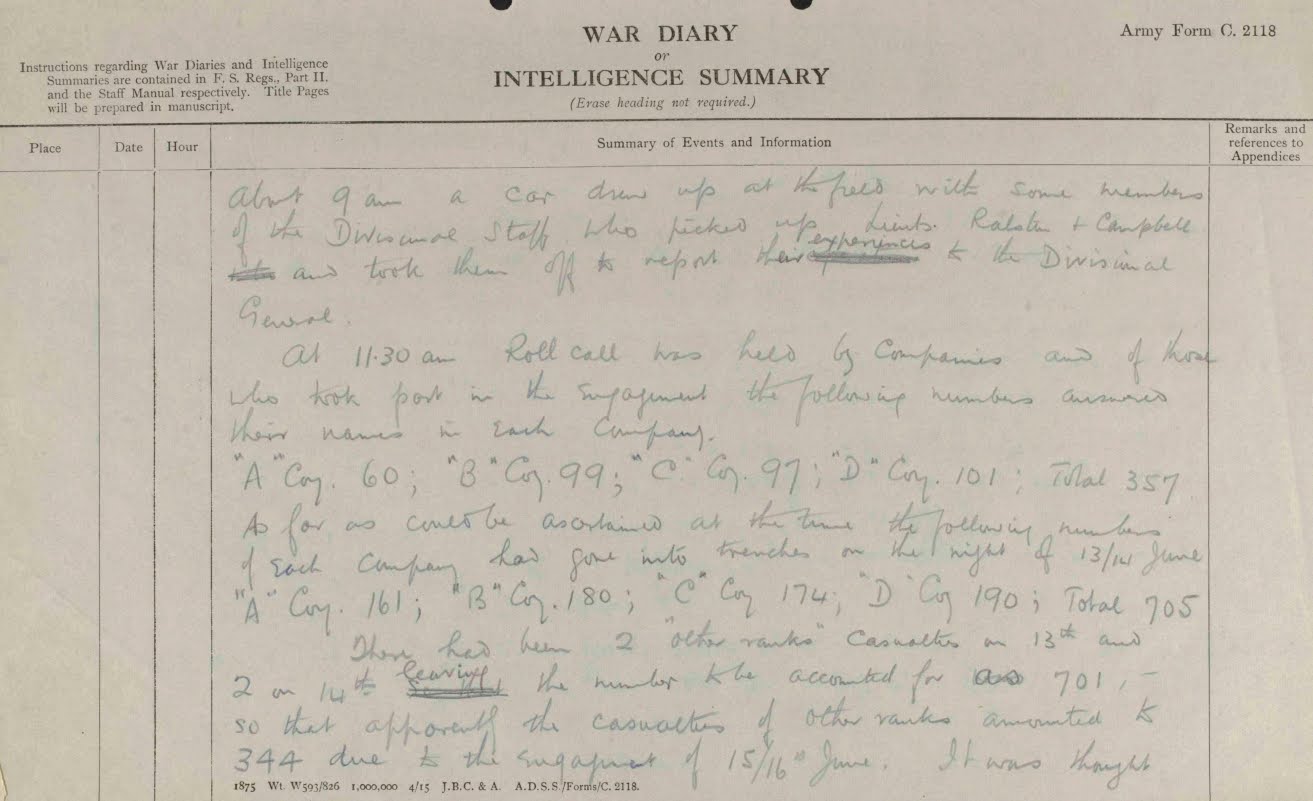 WAR DIARY
or
INTELLIGENCE SUMMARY
(Erase heading not required.)
Army Form C. 2118
Instructions regarding War Diaries and Intelligence
Summaries are contained in F. S. Regs., Part II.
and the Staff Manual respectively. Title Pages
will be prepared in manuscript.
Place
Date
Hour
Summary of Events and Information
Remarks and
references to
Appendices
About 9 am a car drew up at the field with some members
of the Divisional Staff who picked up Lieuts. Ralston + Campbell
and took them off to report their experiences to the Divisional
General.
At 11.30 am Roll call was held by Companies and of those
who took part in the Engagement the following numbers answered
their names in Each Company.
"A" Coy. 60; "B" Coy. 99; "C" Coy. 97; "D" Coy. 101; Total 357
As far as could be ascertained at the time the following numbers
of Each Company had gone into trenches on the night of 13/14 June
"A" Coy. 161; "B" Coy. 180; "C" Coy 174; "D" Coy 190; Total 705
There had been 2 "other ranks" casualties on 13th and
2 on 14th leaving the number to be accounted for as 701, -
so that apparently the casualties of other ranks amounted to
344 due to the engagement of 15/16th June. It was thought
1875 Wt. W593/826 1,000,000 4/15 J.B.C. & A. A.D.S.S./Forms/C. 2118.